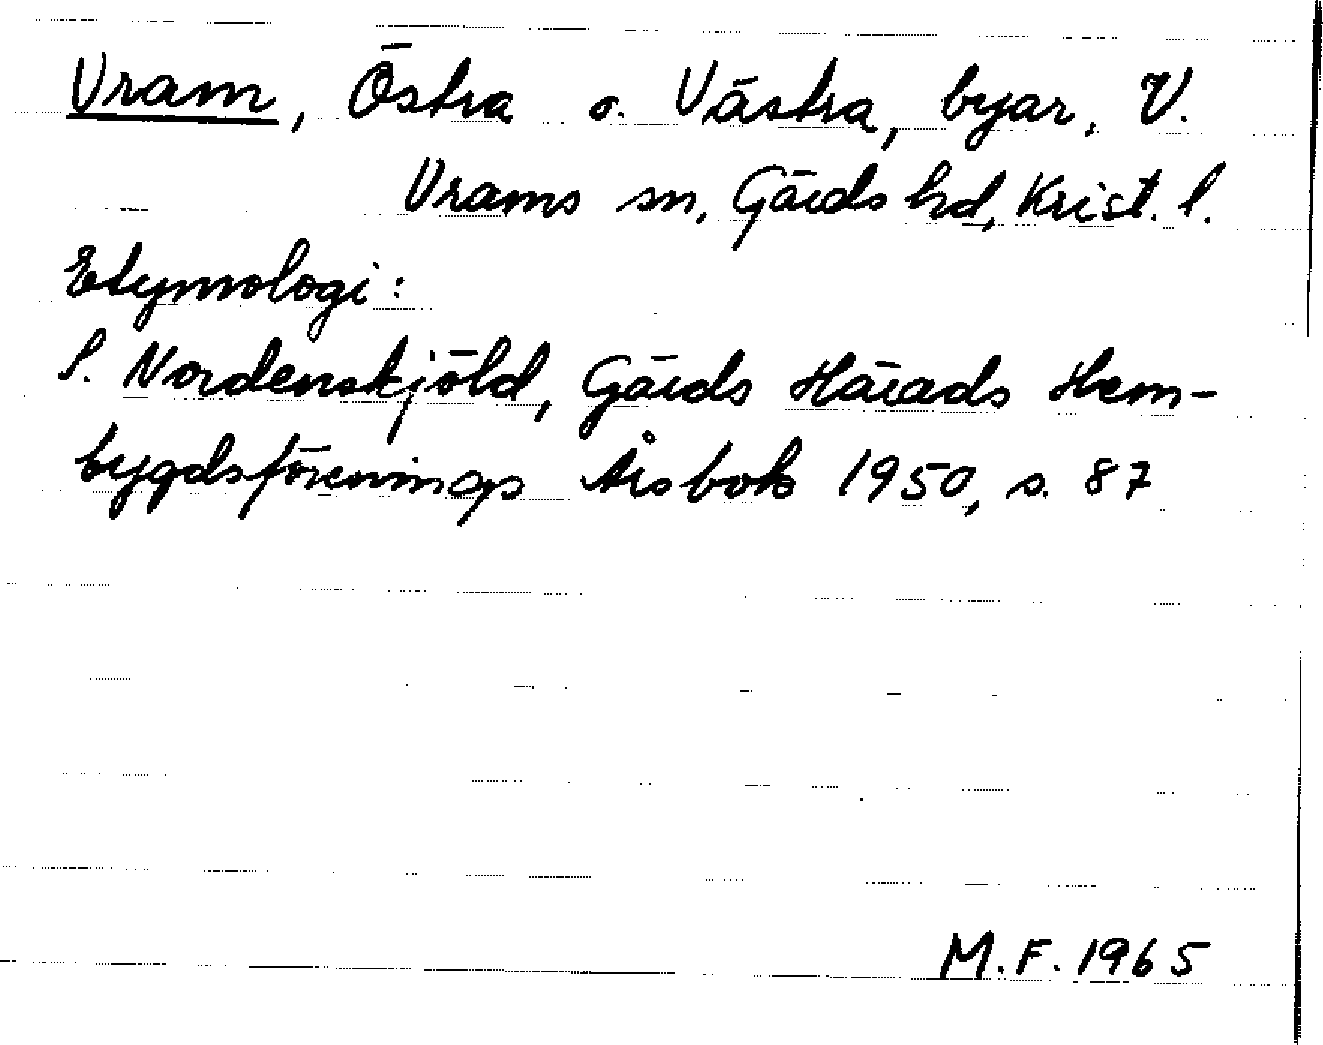 Vram, Östra o. Västra, byar, V.
Vrams sn, Gärds hd, Krist. l.
Etymologi:
S. Nordenskjöld, Gärds Härads Hem-
bygdsförenings Årsbok 1950, s. 87
M.F. 1965